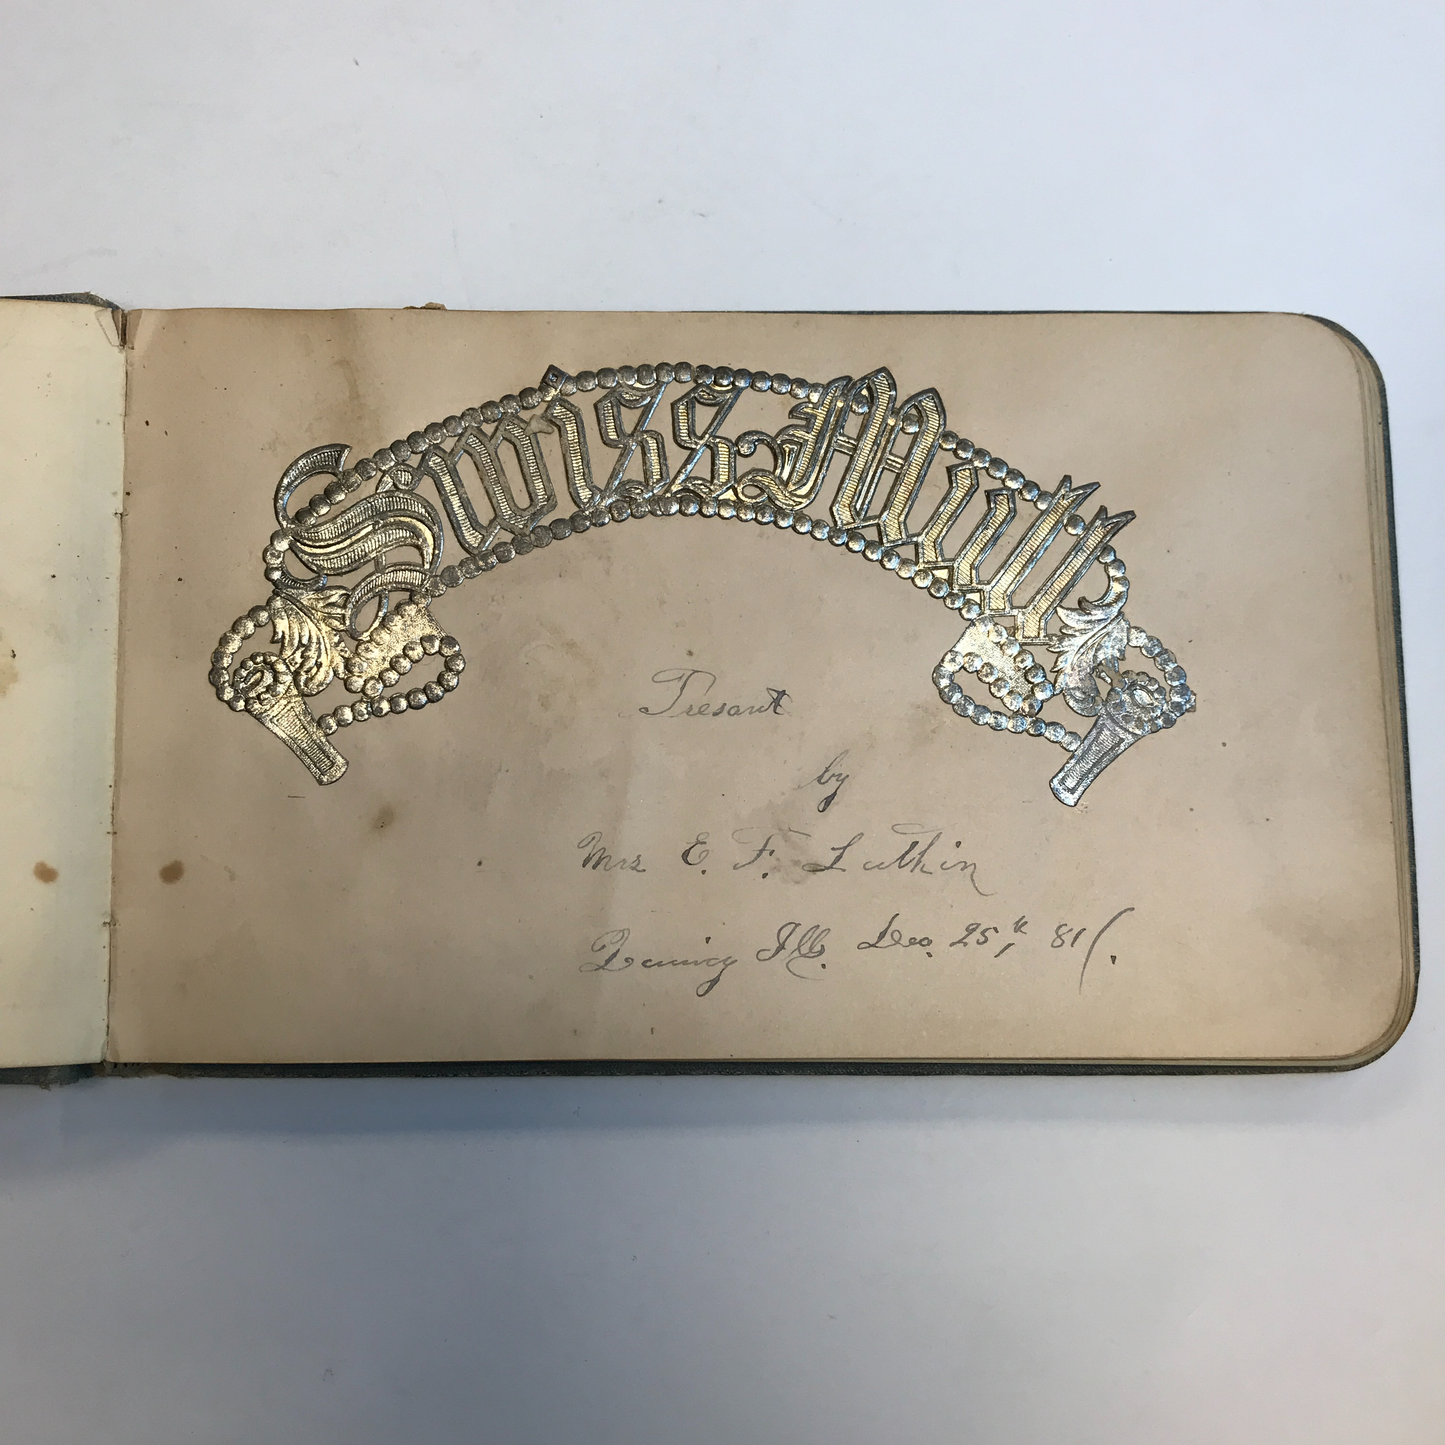 Swiss Mull
Presant
by
Mrs E. F. Lutkin
Quincy Ill. Dec. 25th, 81.